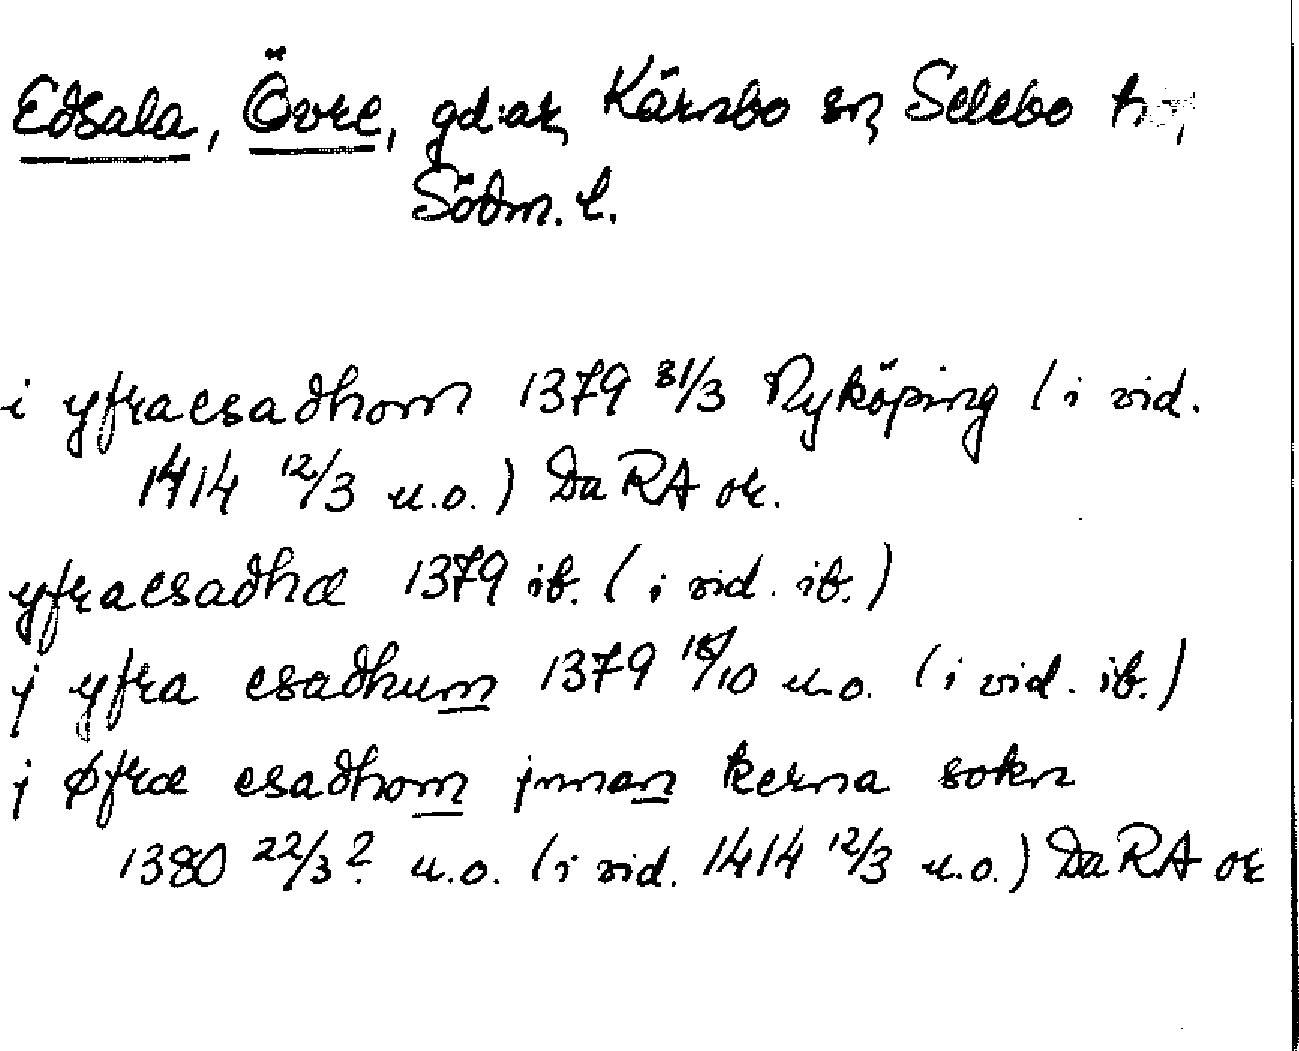 Edsala, Övre, gd:ar, Kärnbo sn, Selebo h
Södm. l.
i yfraesadhom 1379 31/3 Nyköping (i vid.
1414 12/3 u.o.) Da RA or.
yfraesadhæ 1379 ib. (i vid. ib.)
j yfra esadhum 1379 /10 u.o. (i vid. ib.)
j øfræ esadhom jnnan kerna sokn
1380 22/3? u.o. (i vid. 1414 12/3 u.o.) Da RA or